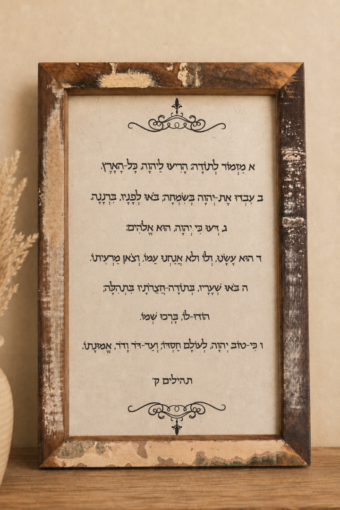 א מִזְמוֹר לְתוֹדָה: הָרִיעוּ לַיהוָה, כָּל-הָאָרֶץ.
ב עִבְדוּ אֶת-יְהוָה בְּשִׂמְחָה; בֹּאוּ לְפָנָיו, בִּרְנָנָה.
ג דְּעוּ כִּי יְהוָה, הוּא אֱלֹהִים:
ד הוּא עָשָׂנוּ, וְלוֹ וְלֹא אֲנַחְנוּ עַמּוֹ, וְצֹאן מַרְעִיתוֹ.
ה בֹּאוּ שְׁעָרָיו, בְּתוֹדָה-חֲצֵרֹתָיו בִּתְהִלָּה;
הוֹדוּ-לוֹ, בָּרְכוּ שְׁמוֹ.
ו כִּי-טוֹב יְהוָה, לְעוֹלָם חַסְדּוֹ; וְעַד-דֹּר וָדֹר, אֱמוּנָתוֹ.
תהילים ק'